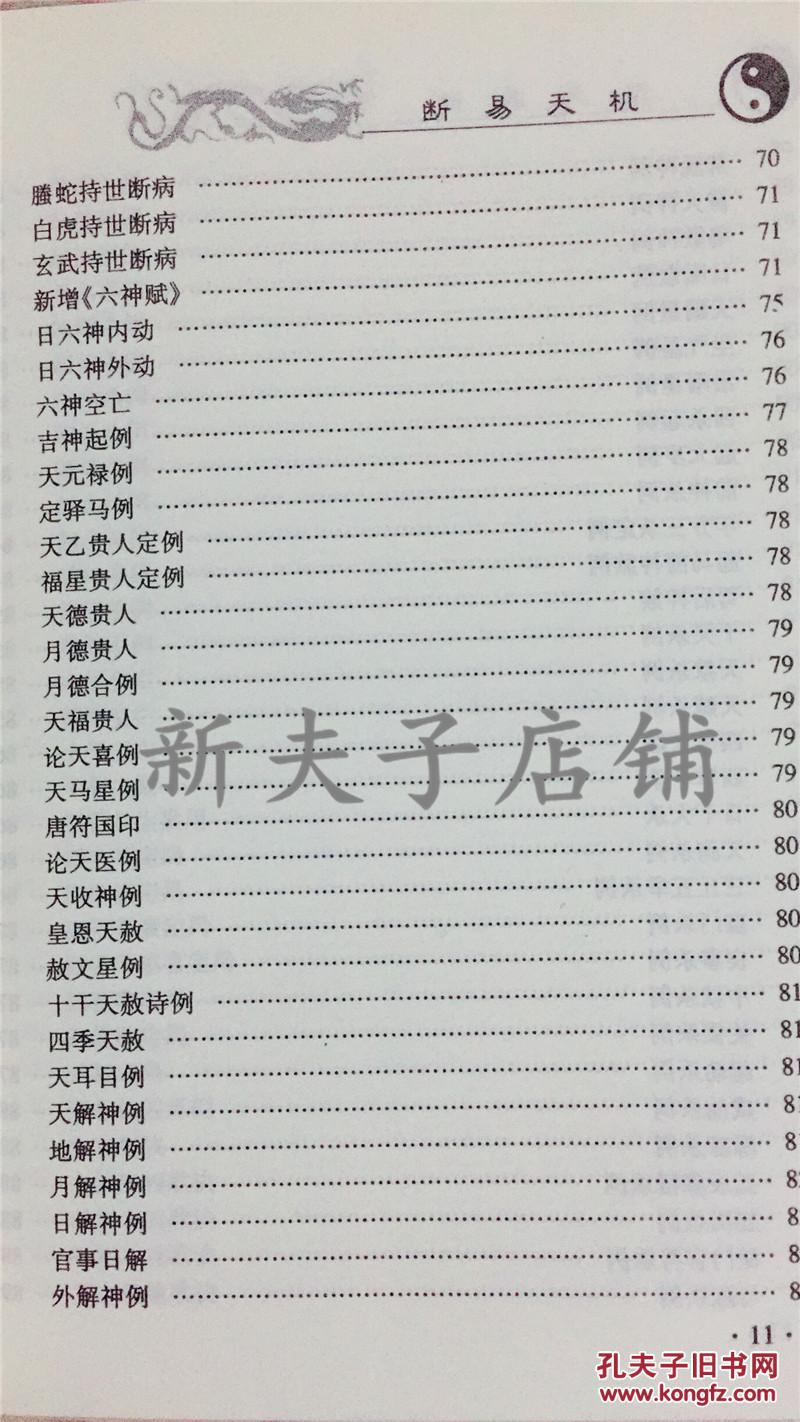 断易天机
螣蛇持世断病 …… 70
白虎持世断病 …… 71
玄武持世断病 …… 71
新增《六神赋》 …… 71
日六神内动 …… 75
日六神外动 …… 76
六神空亡 …… 76
吉神起例 …… 77
天元禄例 …… 78
定驿马例 …… 78
天乙贵人定例 …… 78
福星贵人定例 …… 78
天德贵人 …… 78
月德贵人 …… 79
月德合例 …… 79
天福贵人 …… 79
论天喜例 …… 79
天马星例 …… 79
唐符国印 …… 80
论天医例 …… 80
天收神例 …… 80
皇恩天赦 …… 80
赦文星例 …… 80
十干天赦诗例 …… 81
四季天赦 …… 81
天耳目例 …… 81
天解神例 …… 81
地解神例 …… 81
月解神例 …… 82
日解神例 …… 8
官事日解 …… 8
外解神例 …… 8
·11·
新夫子店铺
孔夫子旧书网
www.kongfz.com